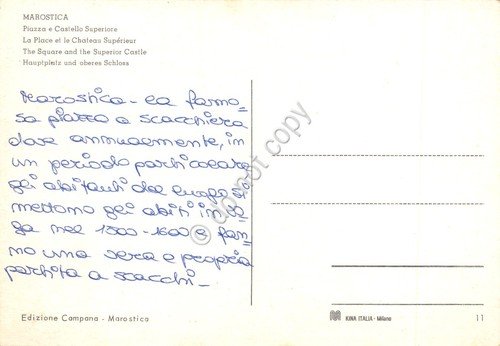 MAROSTICA
Piazza e Castello Superiore
La Place et le Chateau Supérieur
The Square and the Superior Castle
Hauptplatz und oberes Schloss
Marostica - la famo=
sa piazza a scacchiera
dove annualmente, in
un periodo particolare
gli abitanti del luogo si
mettono gli abiti in vo=
ga nel 1500-1600 e fan=
no una vera e propria
partita a scacchi -
do not copy
Edizione Campana - Marostica
KINA ITALIA - Milano
11